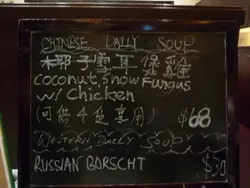 CHINESE DAILY SOUP
椰子雪耳
coconut snow Fungus
w/ Chicken
(可供4位享用) $168
WESTERN DAILY SOUP
RUSSIAN BORSCHT $30